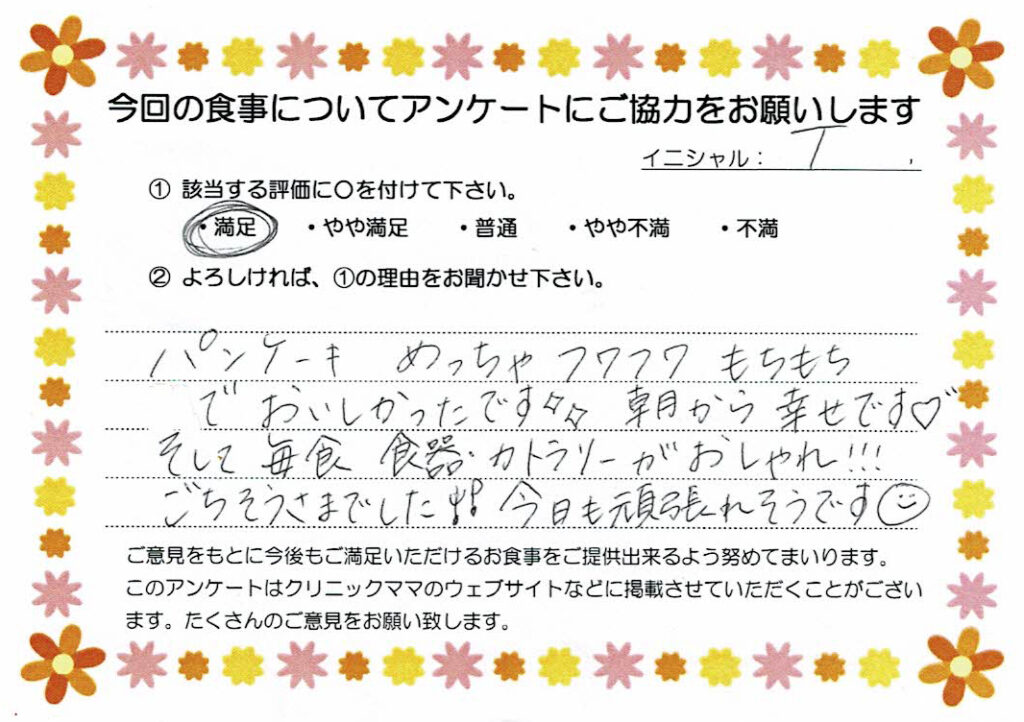 今回の食事についてアンケートにご協力をお願いします
イニシャル： T
① 該当する評価に〇を付けて下さい。
・満足 ・やや満足 ・普通 ・やや不満 ・不満
② よろしければ、①の理由をお聞かせ下さい。
パンケーキ めっちゃフワフワ もちもち
で おいしかったです☆☆ 朝から 幸せです♡
そして 毎食 食器・カトラリーがおしゃれ!!!
ごちそうさまでした!! 今日も頑張れそうです☺
ご意見をもとに今後もご満足いただけるお食事をご提供出来るよう努めてまいります。
このアンケートはクリニックママのウェブサイトなどに掲載させていただくことがござい
ます。たくさんのご意見をお願い致します。